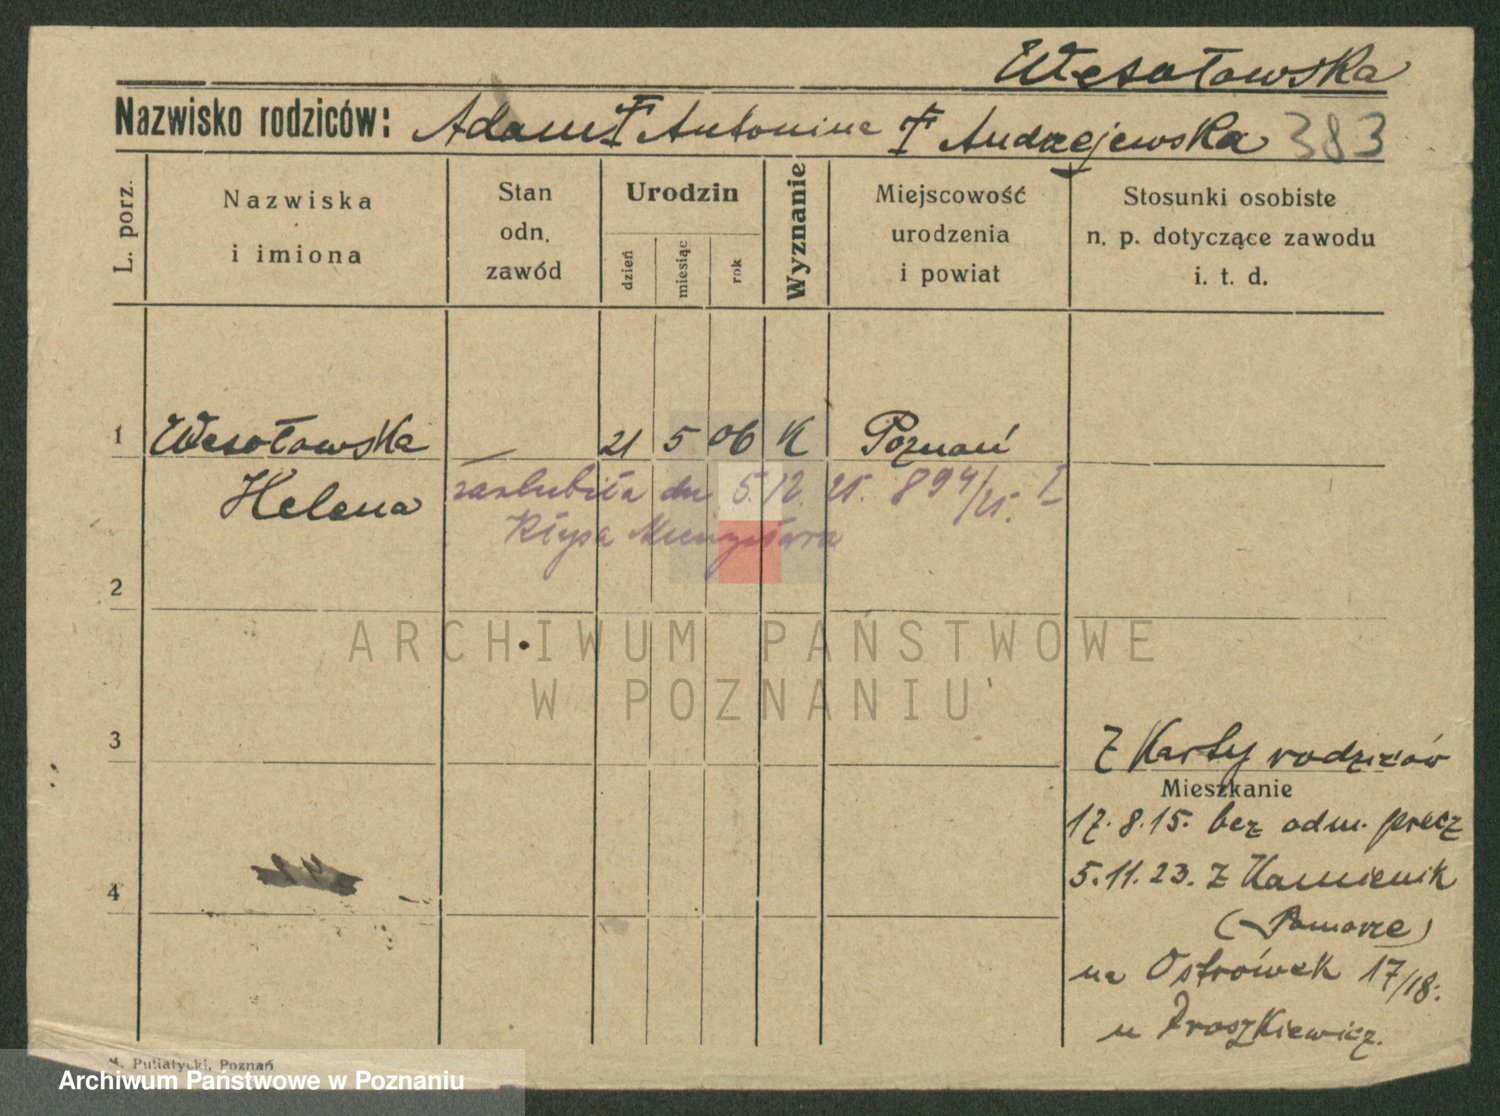 Wesołowska
Nazwisko rodziców: Adam † Antonina † Andrzejewska 383
L. porz.
Nazwiska
i imiona
Stan
odn.
zawód
Urodzin
dzień
miesiąc
rok
Wyznanie
Miejscowość
urodzenia
i powiat
Stosunki osobiste
n. p. dotyczące zawodu
i. t. d.
1 Wesołowska — 21 5 06 K Poznań
Helena
zaślubiła dn 5.12. 25. 894/25. I
Kłysa Mieczysława
2
ARCHIWUM PAŃSTWOWE
W POZNANIU
3
Z Karty rodziców
Mieszkanie
17. 8. 15. bez odm. precz
4
5. 11. 23. Z Kamienik
(Pomorze)
na Ostrówek 17/18.
u Proszkiewicz.
M. Putiatycki, Poznań
Archiwum Państwowe w Poznaniu